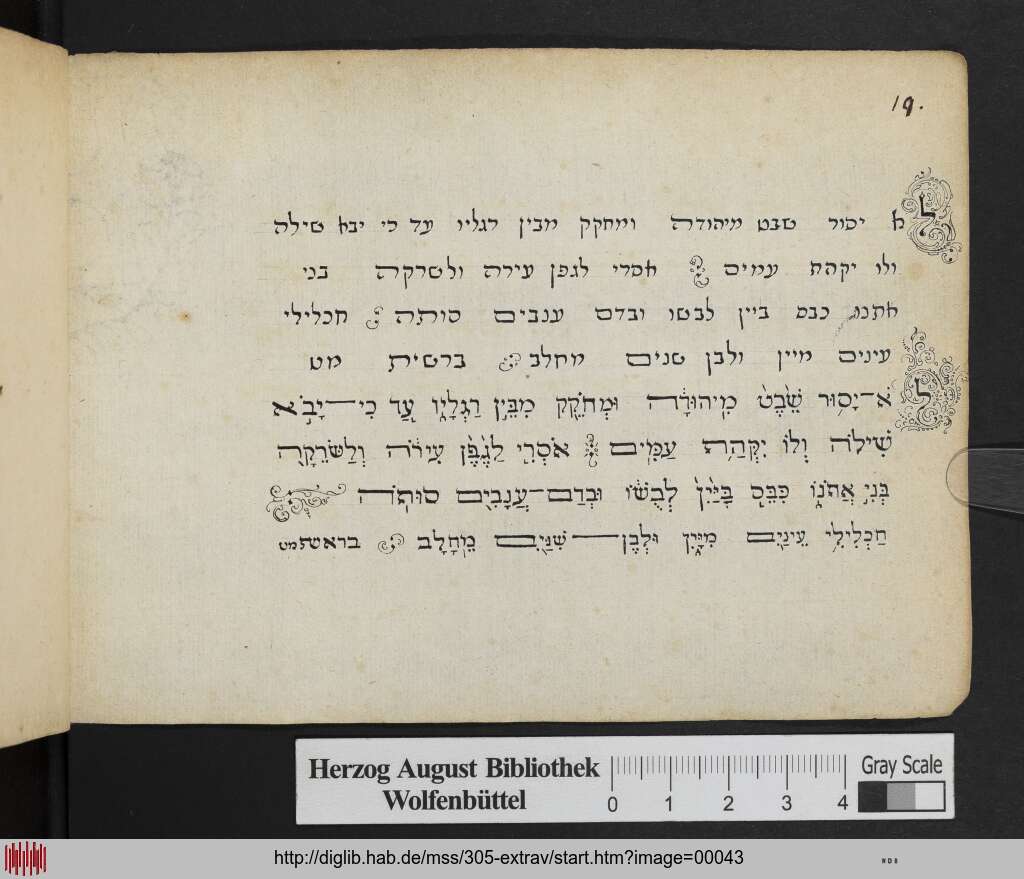 19.
לא יסור שבט מיהודה ומחקק מבין רגליו עד כי יבא שילה
ולו יקהת עמים אסרי לגפן עירה ולשרקה בני
אתנו כבס ביין לבשו ובדם ענבים סותה חכלילי
עינים מיין ולבן שנים מחלב ברשית מט
לֹא־יָס֥וּר שֵׁ֙בֶט֙ מִֽיהוּדָ֔ה וּמְחֹקֵ֖ק מִבֵּ֣ין רַגְלָ֑יו עַ֚ד כִּֽי־יָבֹ֣א
שִׁילֹ֔ה וְל֖וֹ יִקְּהַ֥ת עַמִּֽים אֹסְרִ֤י לַגֶּ֙פֶן֙ עִירֹ֔ה וְלַשֹּׂרֵקָ֖ה
בְּנִ֣י אֲתֹנ֑וֹ כִּבֵּ֤ס בַּיַּ֙יִן֙ לְבֻשׁ֔וֹ וּבְדַם־עֲנָבִ֖ים סוּתֹֽה
חַכְלִילִ֥י עֵינַ֖יִם מִיָּ֑יִן וּלְבֶן־שִׁנַּ֖יִם מֵחָלָֽב בראשתמט
Herzog August Bibliothek
Wolfenbüttel
0 1 2 3 4
Gray Scale
http://diglib.hab.de/mss/305-extrav/start.htm?image=00043